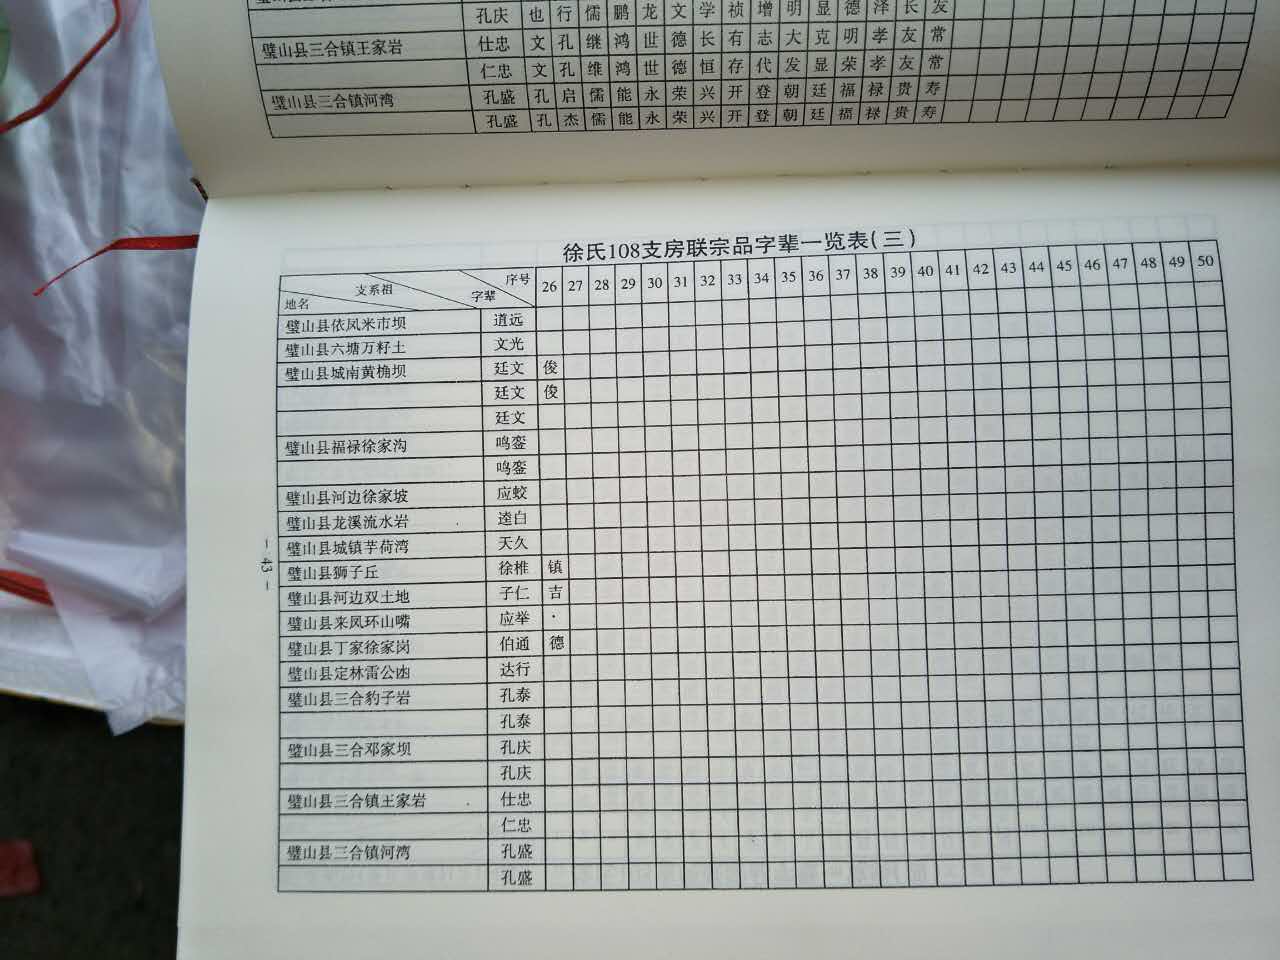 孔庆 也 行 儒 鹏 龙 文 学 祯 增 明 显 德 泽 长 发
璧山县三合镇王家岩 仕忠 文 孔 继 鸿 世 德 长 有 志 大 克 明 孝 友 常
仁忠 文 孔 维 鸿 世 德 恒 存 代 发 显 荣 孝 友 常
璧山县三合镇河湾 孔盛 孔 启 儒 能 永 荣 兴 开 登 朝 廷 福 禄 贵 寿
孔盛 孔 杰 儒 能 永 荣 兴 开 登 朝 廷 福 禄 贵 寿
徐氏108支房联宗品字辈一览表(三)
地名 支系祖 字辈 序号 26 27 28 29 30 31 32 33 34 35 36 37 38 39 40 41 42 43 44 45 46 47 48 49 50
璧山县依凤米市坝 道远
璧山县六塘万籽土 文光
璧山县城南黄桷坝 廷文 俊
廷文 俊
廷文
璧山县福禄徐家沟 鸣銮
鸣銮
璧山县河边徐家坡 应蛟
璧山县龙溪流水岩 逵白
璧山县城镇芋荷湾 天久
璧山县狮子丘 徐椎 镇
璧山县河边双土地 子仁 吉
璧山县来凤环山嘴 应举 ·
璧山县丁家徐家岗 伯通 德
璧山县定林雷公凼 达行
璧山县三合豹子岩 孔泰
孔泰
璧山县三合邓家坝 孔庆
孔庆
璧山县三合镇王家岩 仕忠
仁忠
璧山县三合镇河湾 孔盛
孔盛
— 43 —